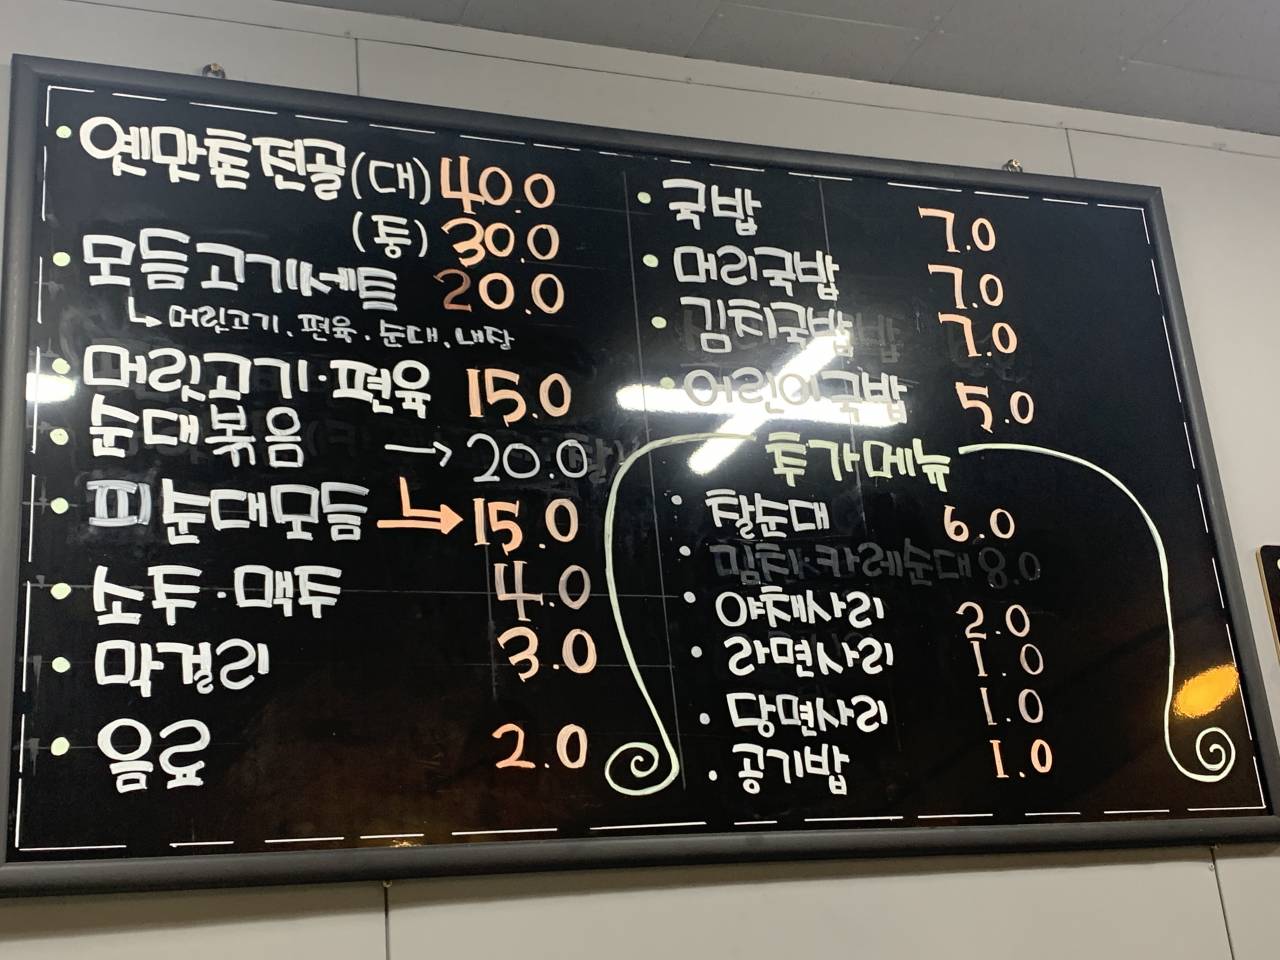 옛맛돈전골(대) 40.0
(중) 30.0
모듬고기세트 20.0
머릿고기.편육.순대.내장
머릿고기·편육 15.0
순대볶음 → 20.0
피순대모듬 15.0
소주·맥주 4.0
막걸리 3.0
음료 2.0
국밥 7.0
머리국밥 7.0
김치국밥 7.0
어린이국밥 5.0
추가메뉴
찰순대 6.0
김치·카레순대 8.0
야채사리 2.0
라면사리 1.0
당면사리 1.0
공기밥 1.0